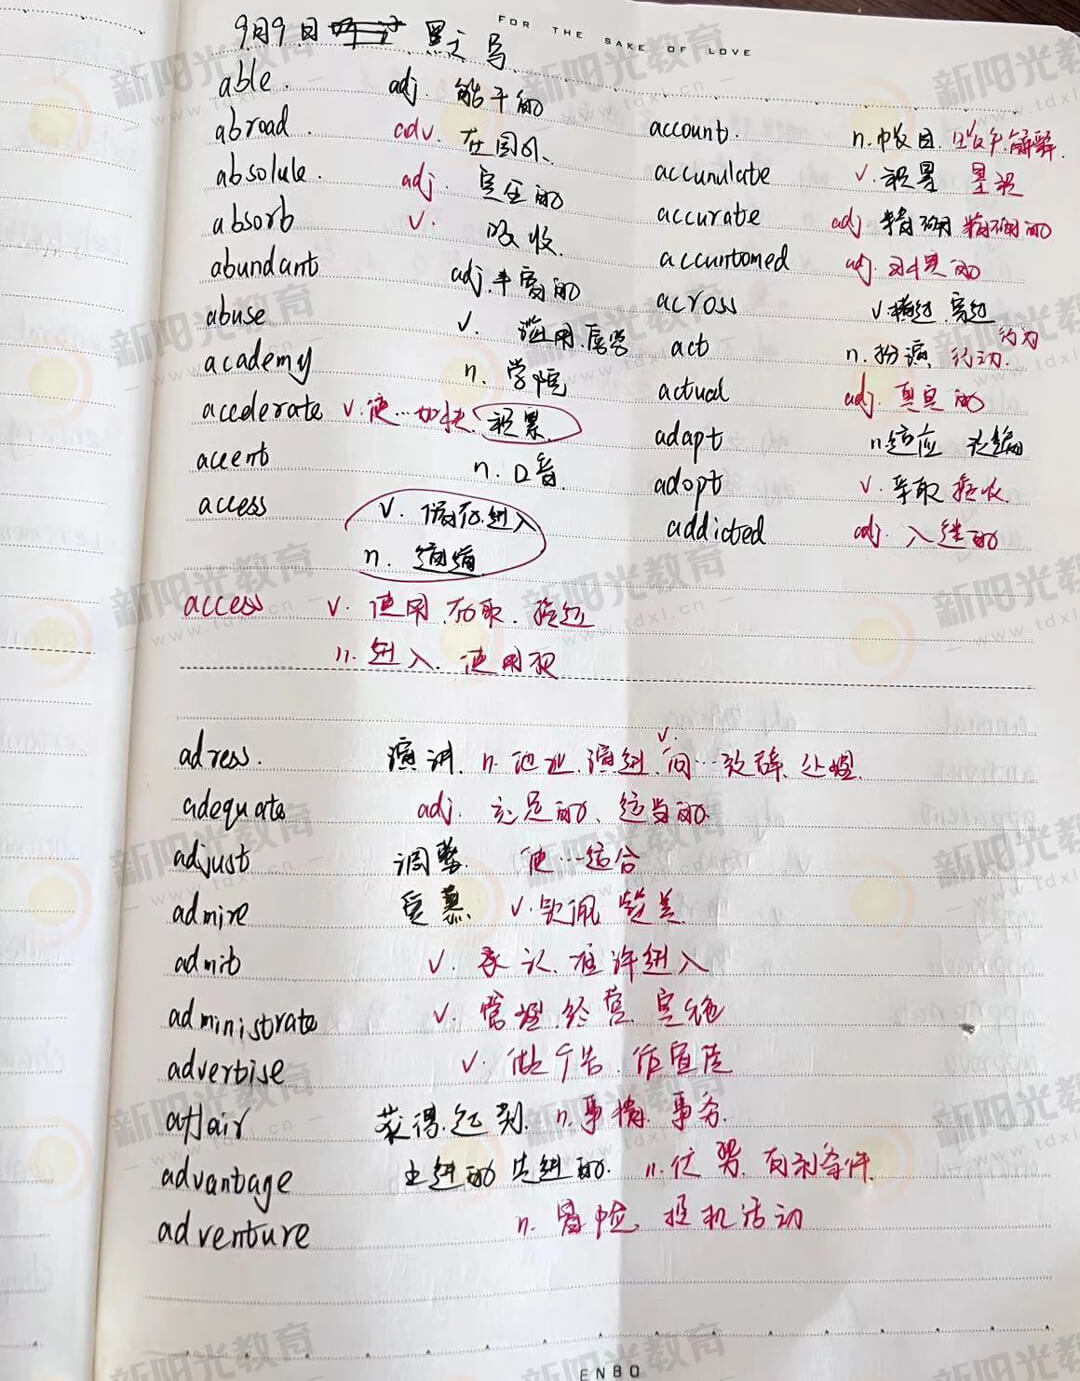 FOR THE SAKE OF LOVE
9月9日 默写
able. adj. 能干的
abroad. adv. 在国外
absolute. adj. 完全的
absorb v. 吸收
abundant adj. 丰富的
abuse v. 滥用.虐待
academy n. 学院
accelerate v. 使…加快. 积累
accent n. 口音
access v. 进入
n.
access v. 使用.存取.接近
n. 进入. 使用权
account. n. 账目. 解释
accunulate v. 积累 累积
accurate adj. 精确 精确的
accuntomed adj. 习惯的
across v. 横过. 穿过
act n. 扮演 行动. 行为
actual adj. 真实的
adapt n. 适应 改编
adopt v. 采取 接收
addicted adj. 入迷的
adress. 演讲. n. 地址. 演讲. v. 向…致辞. 处理.
adequate adj. 充足的、适当的
adjust 调整. 使…适合
admire 爱慕 v. 钦佩 赞美
admit v. 承认. 准许进入
administrate v. 管理.经营.
advertise v. 做广告. 作宣传
affair 获得. n. 事情. 事务.
advantage 先进的. n. 优势. 有利条件.
adventure n. 冒险. 投机活动
ENBO
新阳光教育
www.tdxl.cn